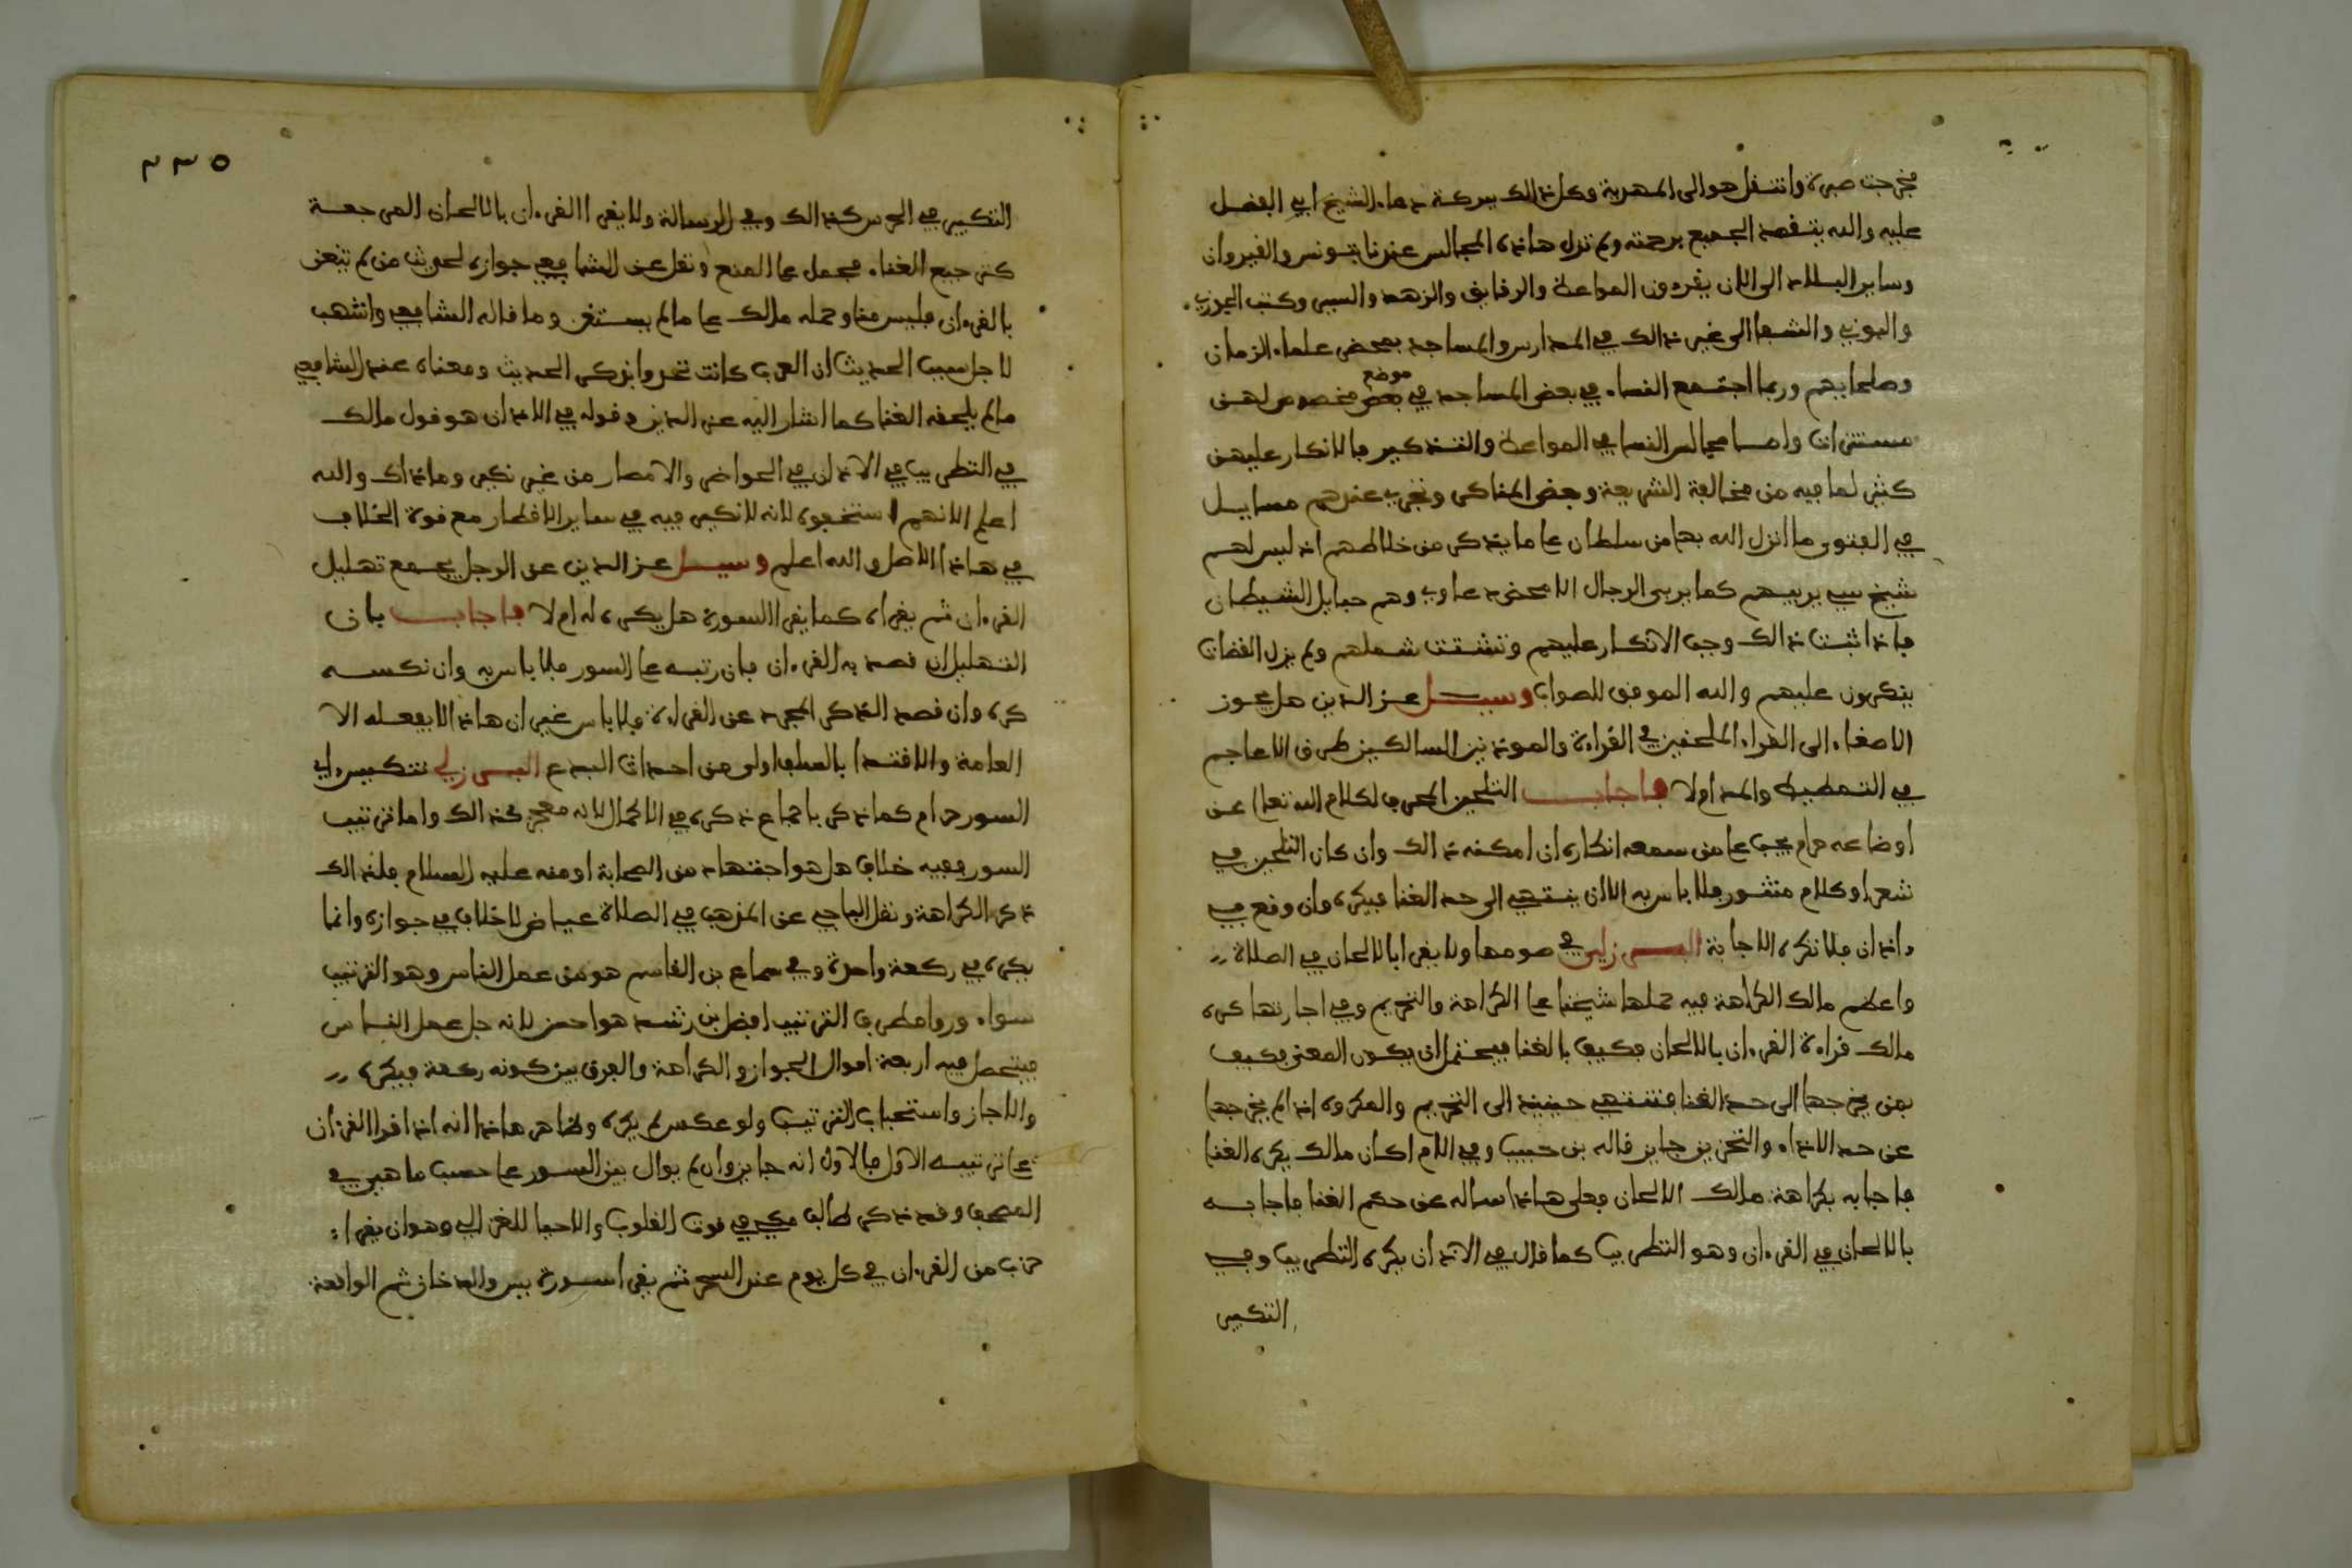 فخرجت صبرة وانتقل هو الى المهدية وكل ذالك ببركة دعاء الشيخ ابي الفضل
عليه والله يتغمد الجميع برحمته ولم تزل هاذه المجالس عندنا بتونس والقيروان
وساير البلاد الى الان يقرءون المواعظ والرقايق والزهد والسير وكتب الجوزي
والبوني والشفا الى غير ذالك في المدارس والمساجد بمحضر علماء الزمان
وصلحايهم وربما اجتمع النساء في بعض المساجد في بعض موضع مخصوص لهن
مستترات واما مجالس النسا في المواعظ والتذكير فالانكار عليهن
كثير لما فيه من مخالفة الشريعة وبعض المناكر وتجري عندهم مسايل
في الفتوى ما انزل الله بها من سلطان على ما يذكر من خالطهم اذ ليس لهم
شيخ يربيهم كما يربي الرجال الا محض دعاوي وهم حبايل الشيطان
فاذا ثبت ذالك وجب الانكار عليهم وتشتت شملهم ولم يزل القضات
ينكرون عليهم والله الموفق للصواب وسيل عز الدين هل يجوز
الاصغاء الى القراء الملحنين في القراءة والموذنين السالكين طرق الاعاجم
في التمطيط والمد ام لا فاجاب التلحين المحرف لكلام الله تعالى عن
اوضاعه حرام يجب على من سمعه انكاره ان امكنه ذالك وان كان التلحين في
شعر او كلام منثور فلا باس به الا ان ينتهي الى حد الغنا فيكره وان وقع في
اذان فلا تكره الاجابة البرزلي في صومها ولا يقرا بالالحان في الصلاة
واعظم مالك الكراهة فيه حملها شيخنا على الكراهة والتحريم وفي اجارتها كره
مالك قراءة القرءان بالالحان فكيف بالغنا فيحتمل ان يكون المعنى فكيف
بمن يخرجها الى حد الغنا فتنتهي حينيذ الى التحريم والمكروه اذا لم يخرجها
عن حد الاداء والتحزين جايز قاله بن حبيب وفي الام اكان مالك يكره الغنا
فاجابه بكراهة مالك الالحان فعلى هاذا ساله عن حكم الغنا فاجابه
بالالحان في القرءان وهو التطريب كما قال في الاذان يكره التطريب وفي
التكبير
٢٣٥
التكبير في الحرس كذالك وفي الرسالة ولا يقرا القرءان بالالحان المرجعة
كترجيع الغناء محمل على المنع ونقل عن الشافعي جوازه لحديث من لم يتغن
بالقرءان فليس منا وحمله مالك على ما لم يستغن وما قاله الشافعي واشهب
لاجل سبب الحديث ان العرب كانت تحدوا بذكر الحديث ومعناه عند الشافعي
ما لم يلحقه الغنا كما اشار اليه عز الدين وقوله في الاذان هو قول مالك
في التطريب في الاذان في الحواضر والامصار من غير نكير وما ذاك والله
اعلم الا انهم استخفوه لانه لا نكير فيه في ساير الاقطار مع قوة الخلاف
في هاذا الاصل والله اعلم وسيل عز الدين عن الرجل يجمع تهليل
القرءان ثم يقراه كما يقرا السورة هل يكره له ام لا فاجاب بان
التهليل ان قصد به القرءان فان رتبه على السور فلا باس به وان نكسه
كره وان قصد الذكر المجرد عن القراءة فلا باس غير ان هاذا لا يفعله الا
العامة والاقتدا بالسلف اولى من احداث البدع البرزلي تنكيس ءاي
السور حرام كما ذكر باجماع ذكره في الاكمال لانه معجز كذالك واما ترتيب
السور ففيه خلاف هل هو اجتهاد من الصحابة او منه عليه السلام فلذالك
ذكر الكراهة ونقل الباجي عن المذهب في الصلاة عياض لا خلاف في جوازه وانما
يكره في ركعة واحدة وفي سماع بن القاسم هو من عمل الناس وهو الترتيب
سواء وروا مطرف الترتيب افضل بن رشد هو احسن لانه جل عمل الناس
فيتحصل فيه اربعة اقوال الجواز والكراهة والفرق بين كونه ركعة فيكره
والا جاز واستحباب الترتيب ولو عكس لم يكره وظاهر هاذا انه اذا قرا القرءان
على ترتيبه الاول فالاول انه جايز وان لم يوال بين السور على حسب ما هي في
المصحف وقد ذكر طالب مكي في قوت القلوب والاحيا للغزالي وهو ان يقرا
حزب من القرءان في كل يوم عند السحر ثم يقرا سورة يس والدخان ثم الواقعة